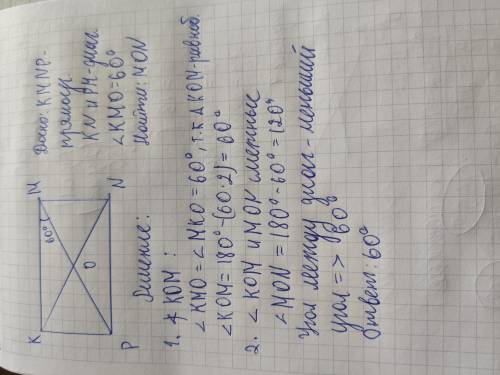 K
M
60°
O
P
N
Дано: KMNP-
прямоуг
KN и PM-диаг.
∠KMO=60°
Найти: MON
Решение:
1. ∆ KOM:
∠KMO=∠MKO=60°, т.к ∆KOM-равноб.
∠KOM=180°-(60·2)=60°
2. ∠KOM и MON смежные
∠MON=180°-60°=120°
Угол между диаг-меньший
угол => 60°
Ответ: 60°